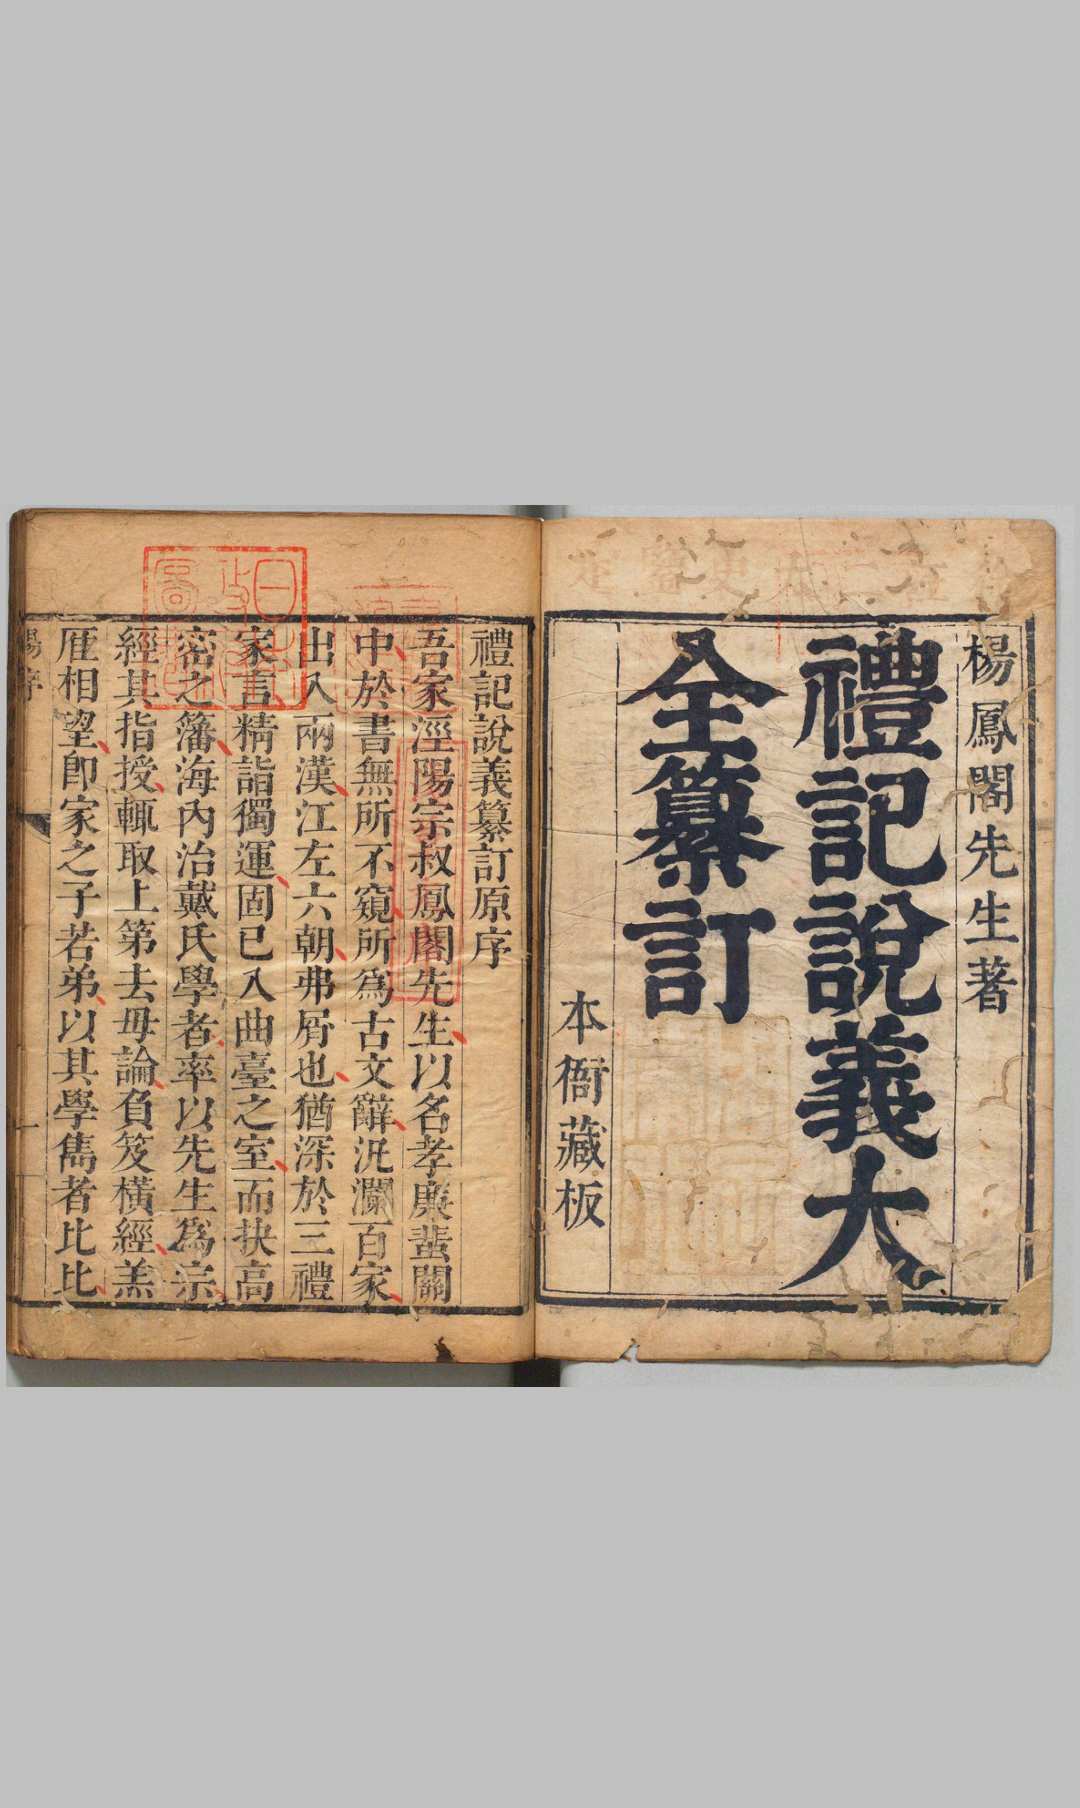 楊鳳閣先生著
禮記說義大
全纂訂
本衙藏板
禮記說義纂訂原序
吾家涇陽宗叔鳳閣先生以名孝廉蜚關
中於書無所不窺所爲古文辭汎瀾百家
出入兩漢江左六朝弗屑也猶深於三禮
家言精詣獨運固已入曲臺之室而抉高
密之籓海內治戴氏學者率以先生爲宗
經其指授輒取上第去毋論負笈橫經羔
厓相望卽家之子若弟以其學雋者比比
楊序
一